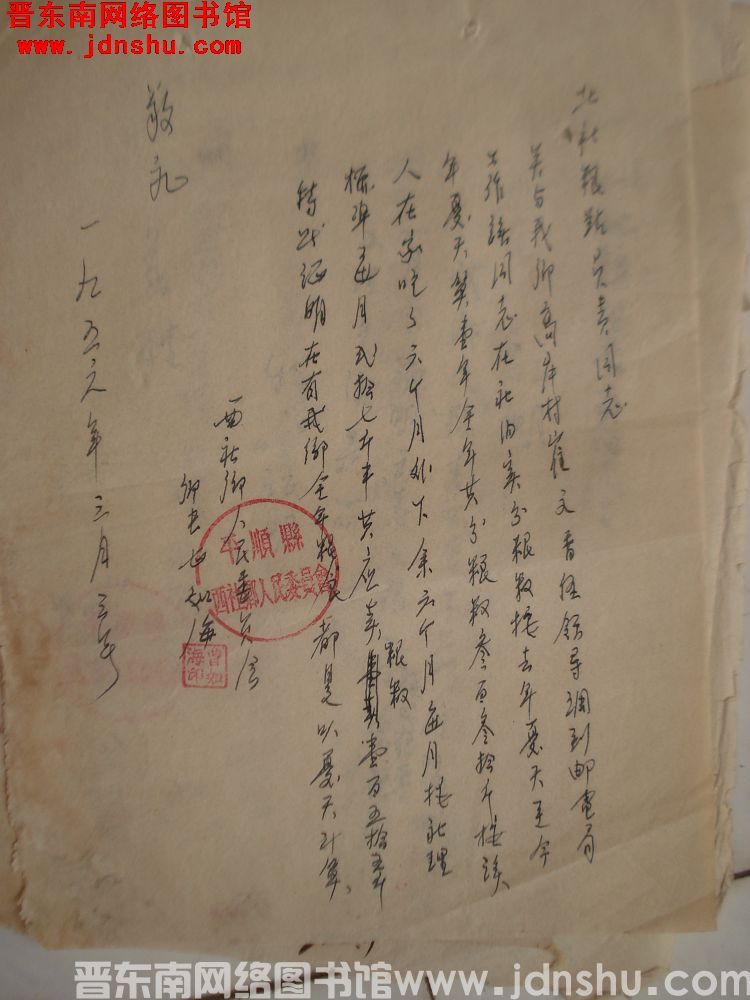 晋东南网络图书馆
www.jdnshu.com
北社粮站负责同志
关与我乡高岸村崔文香经领导调到邮电局
工作该同志在社内实分粮数按去年夏天至今
年夏天算壹年全年共分粮数叁百叁拾斤按该
人在家吃了六个月外下余六个月每月按社理
标准每月式拾七斤半共应卖粮数壹百五拾斤
特此证明在有我乡全年粮食都是以夏天计算、
西社乡人民委员会
乡长如海
平順縣
西社鄉人民委員會
曾如海印
敬礼
一九五六年三月三号
晋东南网络图书馆www.jdnshu.com